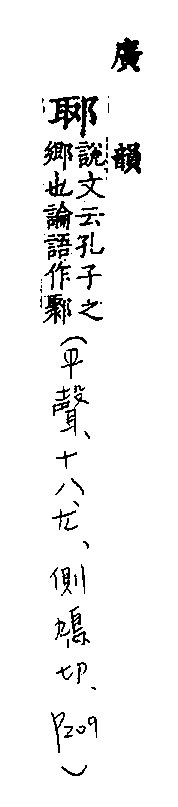 廣韻
郰說文云孔子之
鄉也論語作鄹
(平聲、十八、尤、側鳩切、P209)